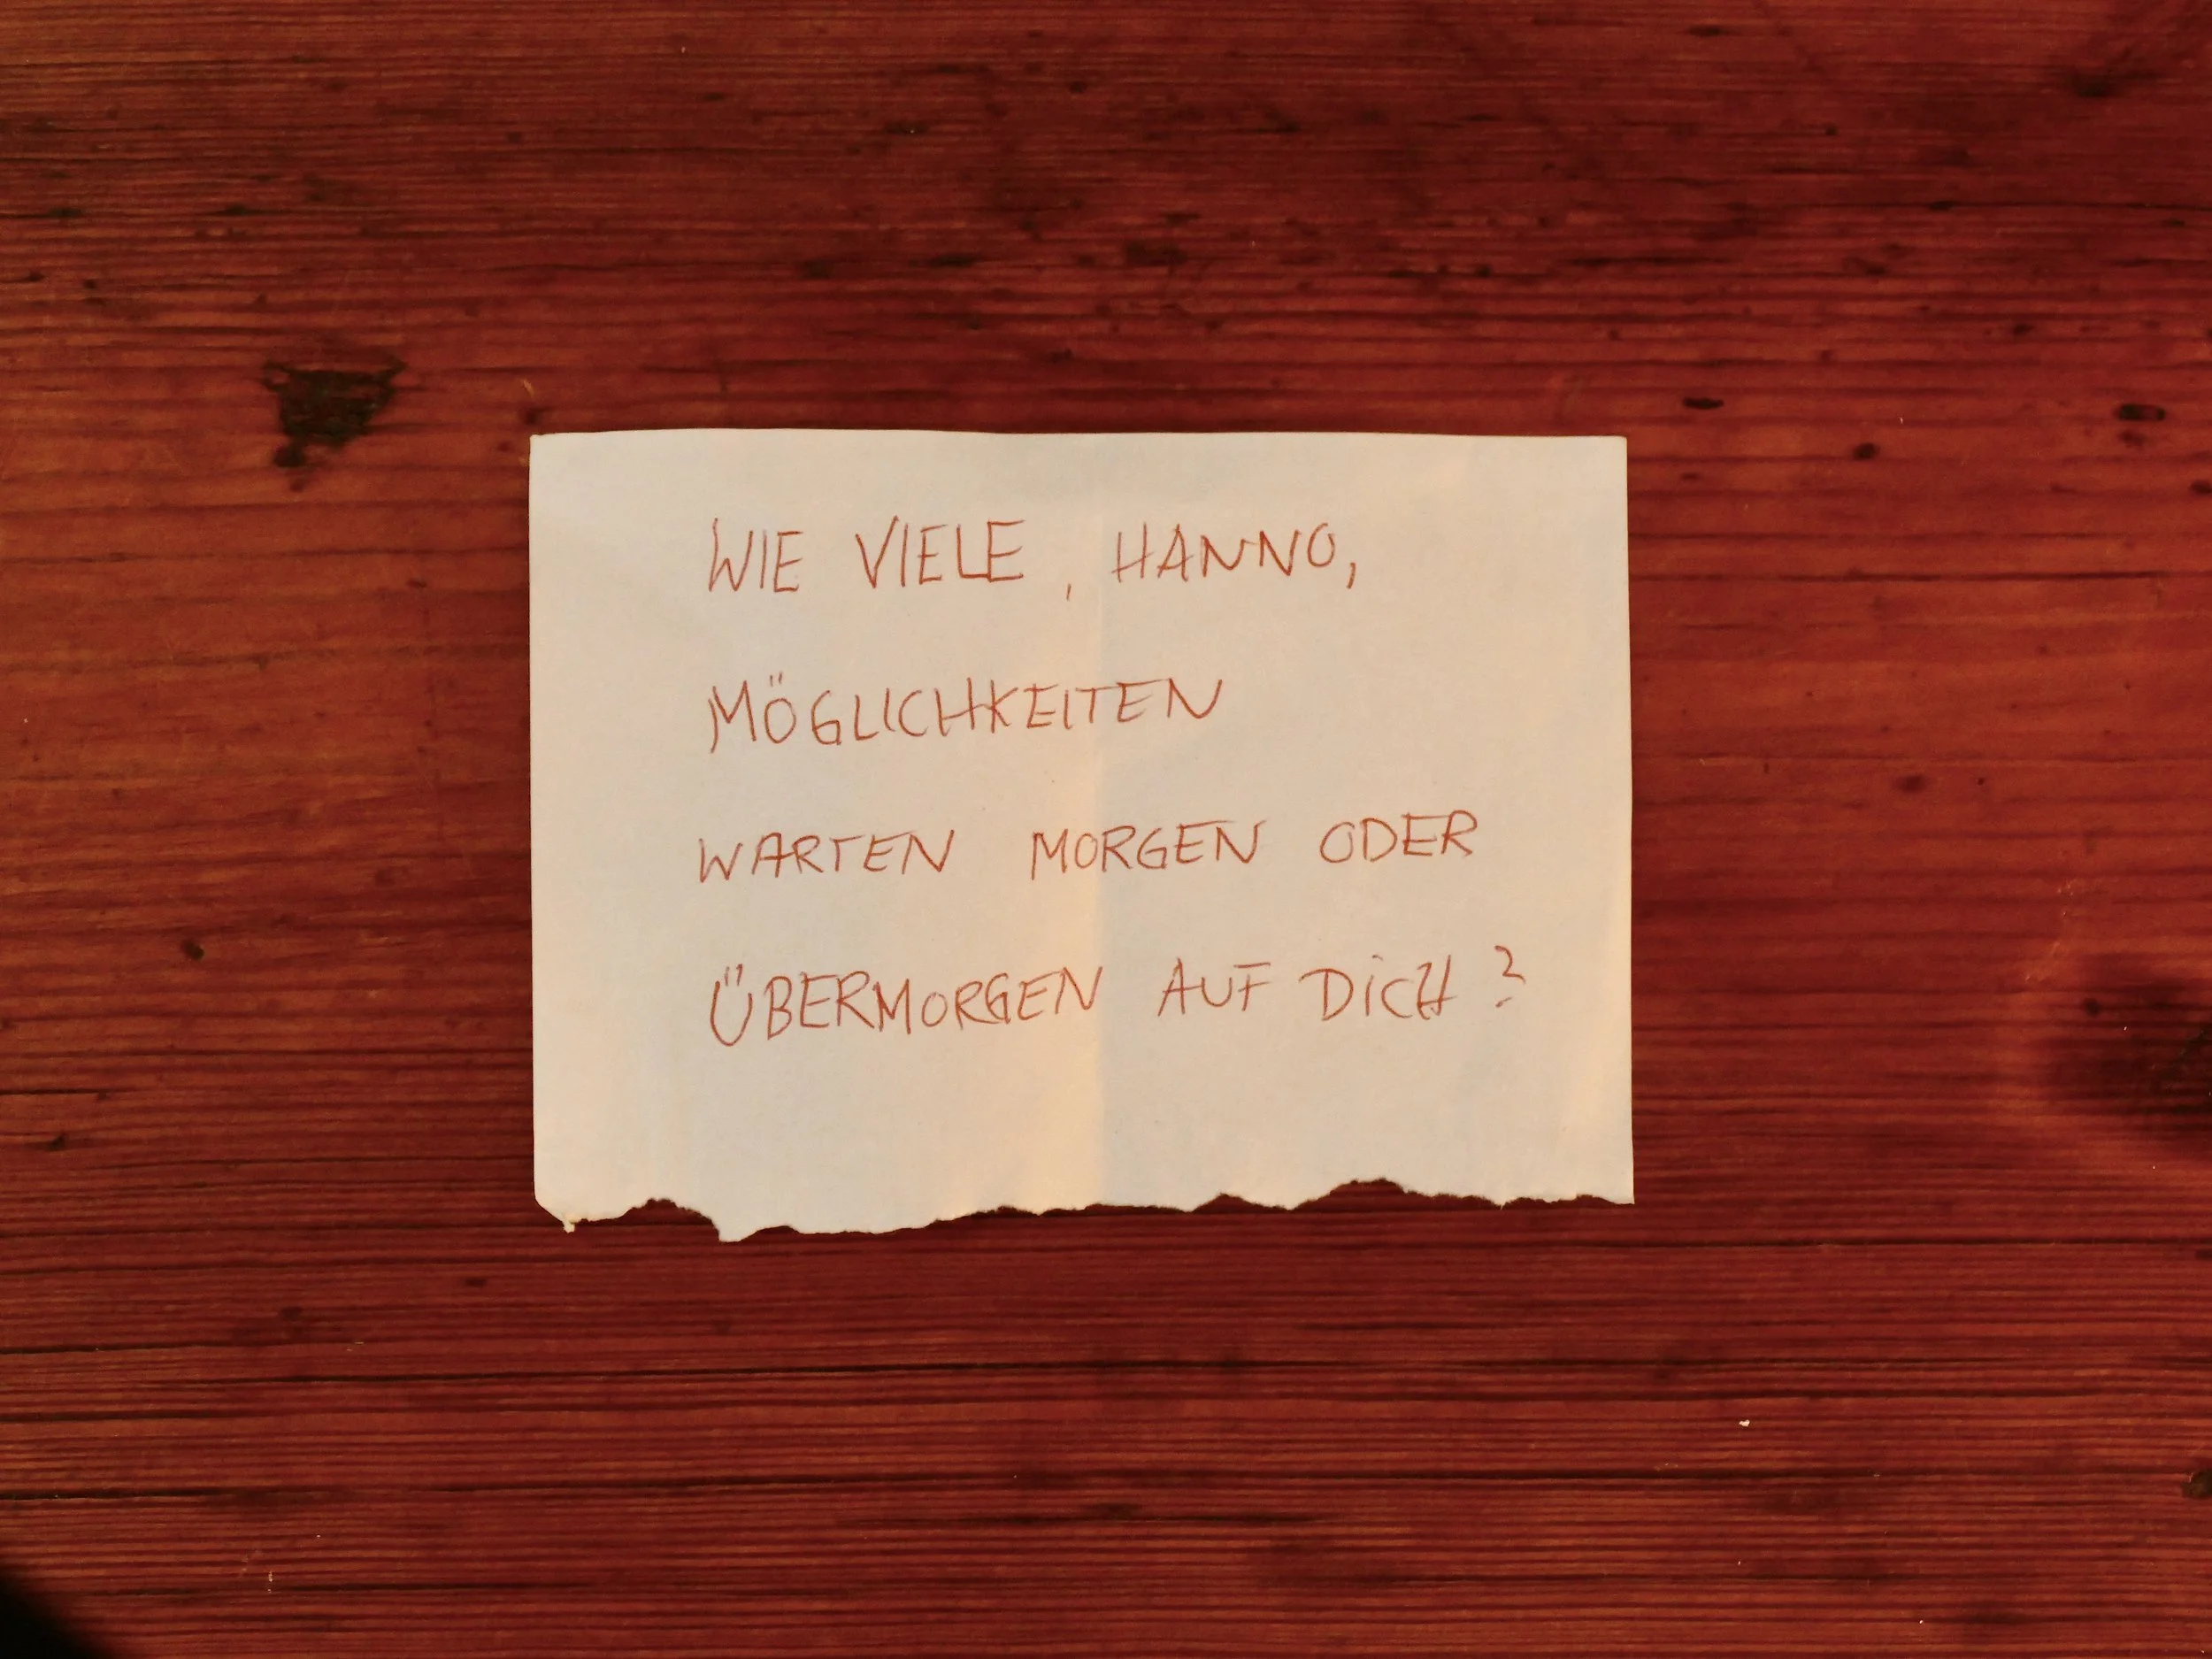 WIE VIELE, HANNO,
MÖGLICHKEITEN
WARTEN MORGEN ODER
ÜBERMORGEN AUF DICH?